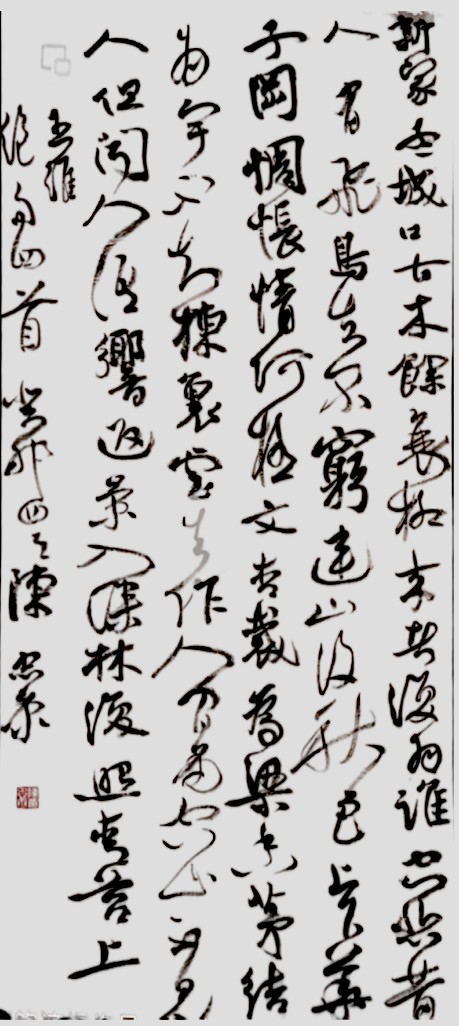 新家孟城口古木餘衰柳來者復為誰空悲昔
人有飛鳥去不窮連山復秋色上下華
子岡惆悵情何極文杏裁為梁香茅結
為宇不知棟裏雲去作人間雨空山不見
人但聞人語響返景入深林復照青苔上
王維
絕句四首 癸卯四 陳忠康